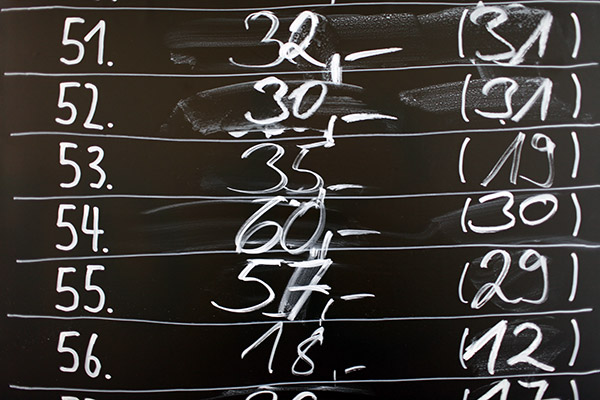 51. 32,- (31)
52. 30,- (31)
53. 35,- (19)
54. 60,- (30)
55. 57,- (29)
56. 18,- (12)